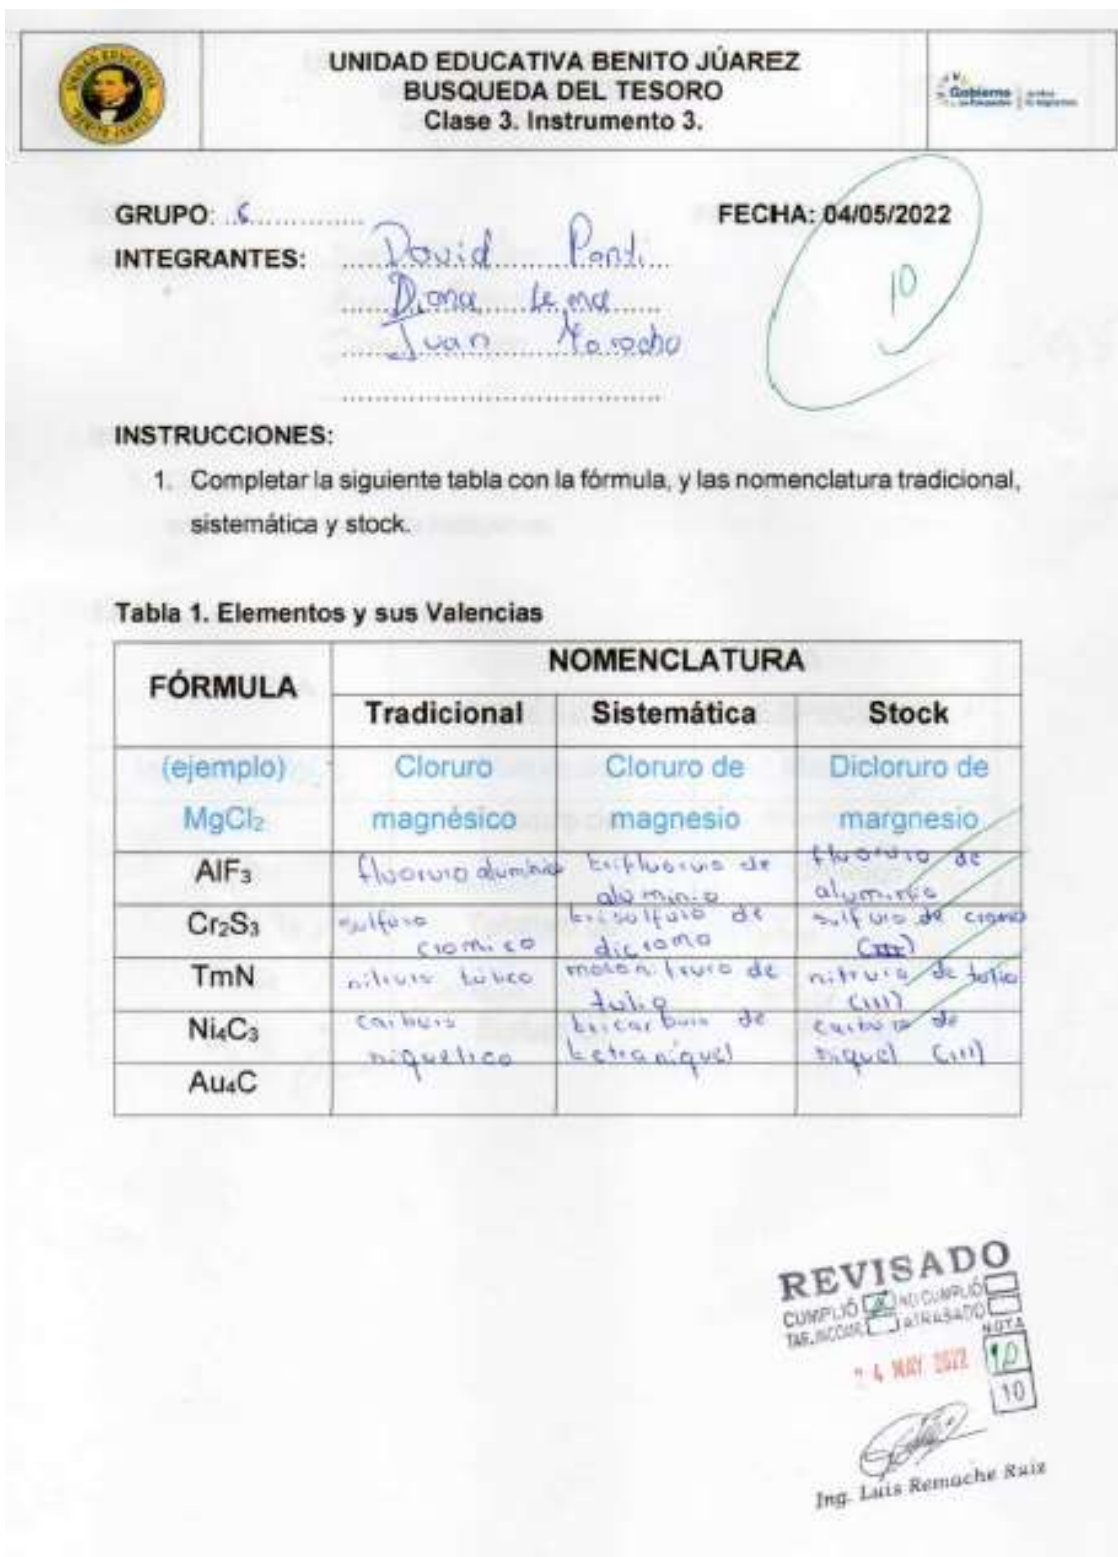 UNIDAD EDUCATIVA BENITO JÚAREZ
BUSQUEDA DEL TESORO
Clase 3. Instrumento 3.
UNIDAD EDUCATIVA
"BENITO JUAREZ"
Gobierno
GRUPO: 6
FECHA: 04/05/2022
INTEGRANTES: David
Diana Lema
Juan
10
INSTRUCCIONES:
1. Completar la siguiente tabla con la fórmula, y las nomenclatura tradicional,
sistemática y stock.
Tabla 1. Elementos y sus Valencias
FÓRMULA
NOMENCLATURA
Tradicional Sistemática Stock
(ejemplo) Cloruro Cloruro de Dicloruro de
MgCl₂ magnésico magnesio margnesio
AlF₃ fluoruro trifluoruro de aluminio fluoruro de aluminio
Cr₂S₃ sulfuro cromico trisulfuro de dicromo sulfuro de cromo (III)
TmN nitruro mononitruro de tulio nitruro de tulio (III)
Ni₄C₃ carburo niquelico tricarburo de tetraniquel carburo de niquel (III)
Au₄C
REVISADO
CUMPLIÓ NO CUMPLIÓ
TAR.INCOM. ATRASADO
NOTA
24 MAY 2022 10
10
Ing. Luis Remache Ruiz